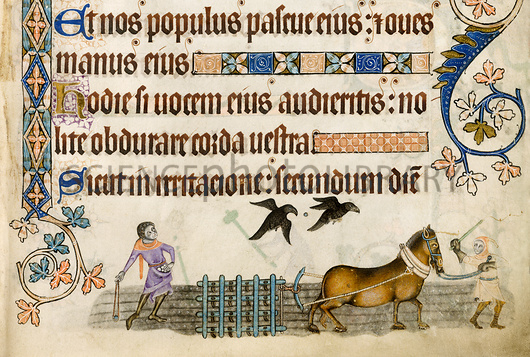 Et nos populus pascue eius: ⁊ oues
manus eius
Hodie si uocem eius audieritis: no
lite obdurare corda uestra
SCIENCEphotoLIBRARY
Sicut in irritacione: secundum diē